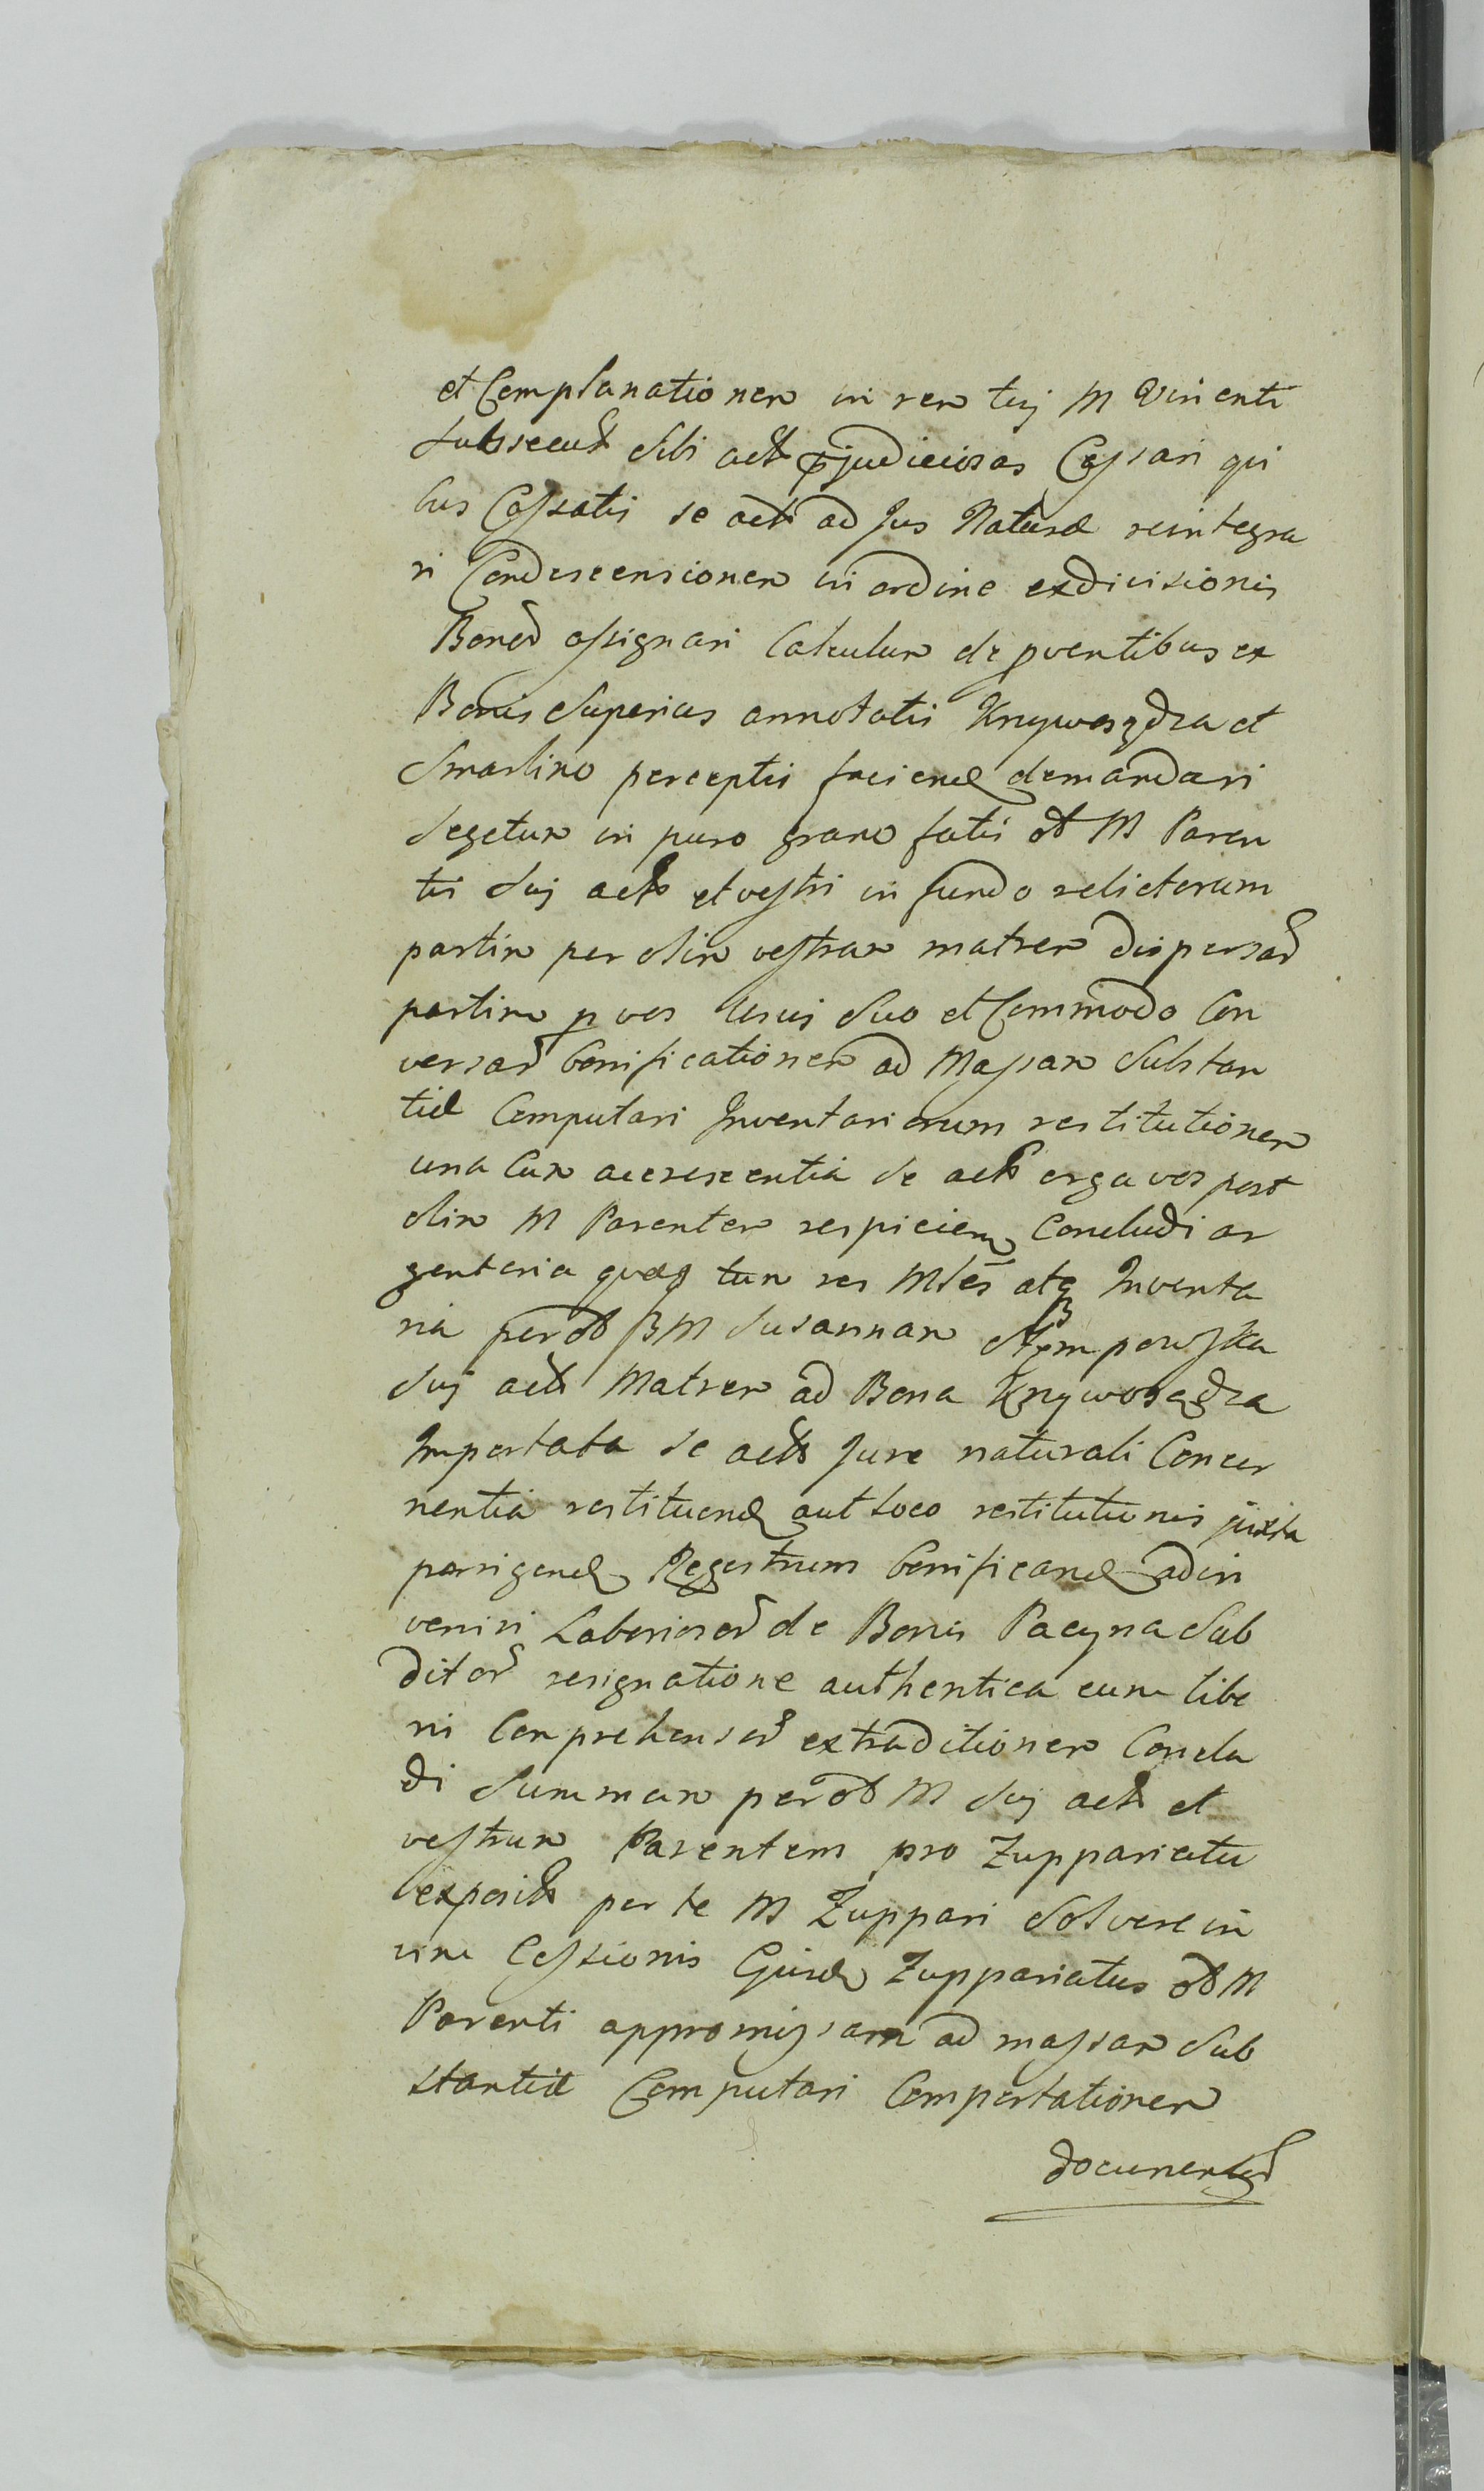 et Complanationem in rem tuj M Vincenti
subsecut sibi act pjudiciosas Cassari qui
bus Cassatis se act ad Jus Naturae reintegra
ri Condescensionem in ordine exdivisionis
Bonor assignari Calculum de pventibus ex
Bonis Superius annotatis Krzywosądza et
Smarlino perceptis faciend demandari
Segetum in puro grano satis ol M Paren
tis Suj act et vestri in fundo relictorum
partim per olim vestram matrem dispersar
partim p vos usui Suo et Commodo Con
versar bonificationem ad Massam Substan
tiae Computari Inventariorum restitutionem
una Cum accrescentia se act erga vos post
olim M Parentem respicien Concludi ar
genteria quaeq tum res Mles atq Inventa
ria per ol M Susannam
Suj act Matrem ad Bona Krzywosądza
Importata se act Jure naturali Concer
nentia restituend aut loco restitutionis juxta
porrigend Regestrum bonificand adin
veniri Laboriosor de Bonis Pacyna Sub
ditor resignatione authentica cum libe
ris Comprehensor extraditionem Conclu
di Summam per ol M Suj act et
vestrum Parentem pro Zuppariatu
exposit per te M Zuppari Solvere in
vim Cessionis Ejusd Zuppariatus ol M
Parenti appromissam ad massam Sub
stantiae Computari Comportationem
documentor